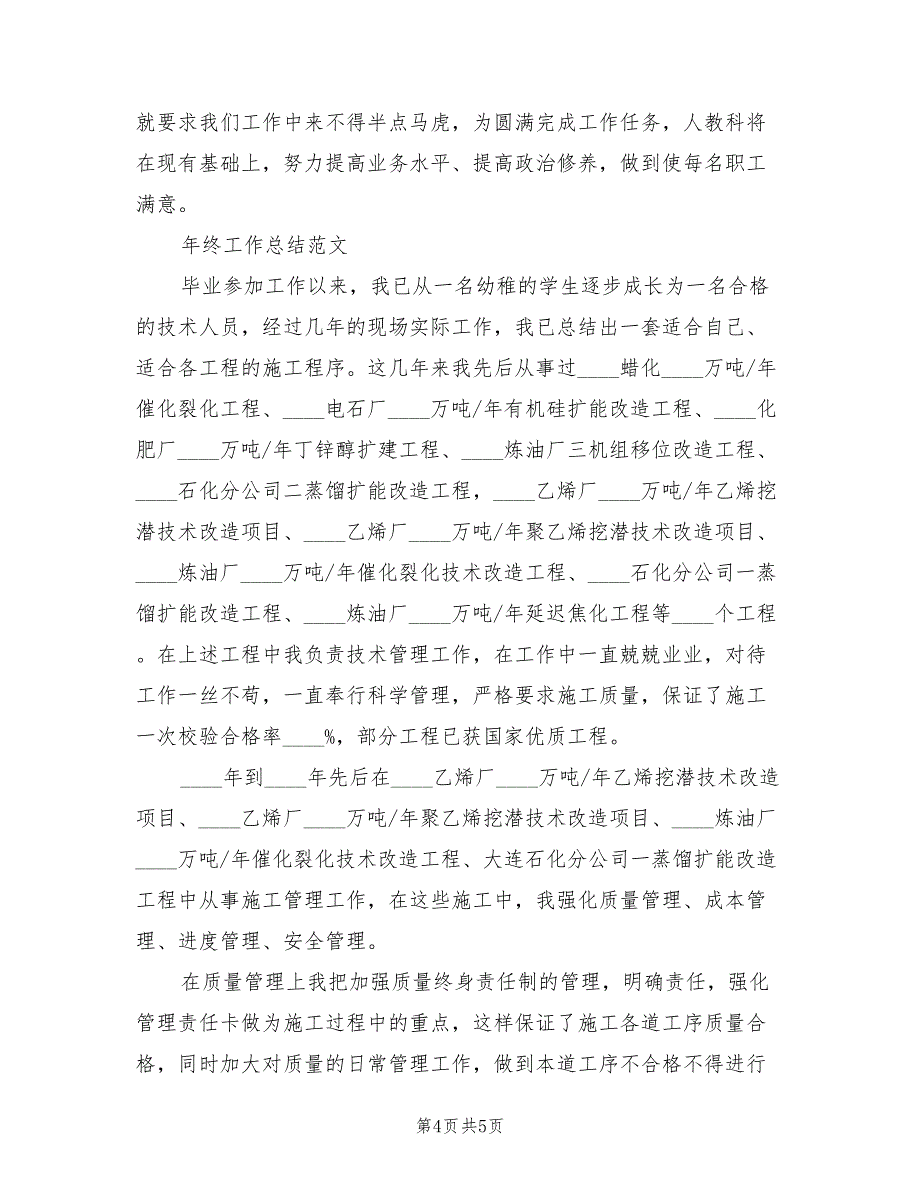 就要求我们工作中来不得半点马虎，为圆满完成工作任务，人教科将
在现有基础上，努力提高业务水平、提高政治修养，做到使每名职工
满意。
年终工作总结范文
毕业参加工作以来，我已从一名幼稚的学生逐步成长为一名合格
的技术人员，经过几年的现场实际工作，我已总结出一套适合自己、
适合各工程的施工程序。这几年来我先后从事过____蜡化____万吨/年
催化裂化工程、____电石厂____万吨/年有机硅扩能改造工程、____化
肥厂____万吨/年丁锌醇扩建工程、____炼油厂三机组移位改造工程、
____石化分公司二蒸馏扩能改造工程，____乙烯厂____万吨/年乙烯挖
潜技术改造项目、____乙烯厂____万吨/年聚乙烯挖潜技术改造项目、
____炼油厂____万吨/年催化裂化技术改造工程、____石化分公司一蒸
馏扩能改造工程、____炼油厂____万吨/年延迟焦化工程等____个工程
。在上述工程中我负责技术管理工作，在工作中一直兢兢业业，对待
工作一丝不苟，一直奉行科学管理，严格要求施工质量，保证了施工
一次校验合格率____%，部分工程已获国家优质工程。
____年到____年先后在____乙烯厂____万吨/年乙烯挖潜技术改造
项目、____乙烯厂____万吨/年聚乙烯挖潜技术改造项目、____炼油厂
____万吨/年催化裂化技术改造工程、大连石化分公司一蒸馏扩能改造
工程中从事施工管理工作，在这些施工中，我强化质量管理、成本管
理、进度管理、安全管理。
在质量管理上我把加强质量终身责任制的管理，明确责任，强化
管理责任卡做为施工过程中的重点，这样保证了施工各道工序质量合
格，同时加大对质量的日常管理工作，做到本道工序不合格不得进行
第4页共5页